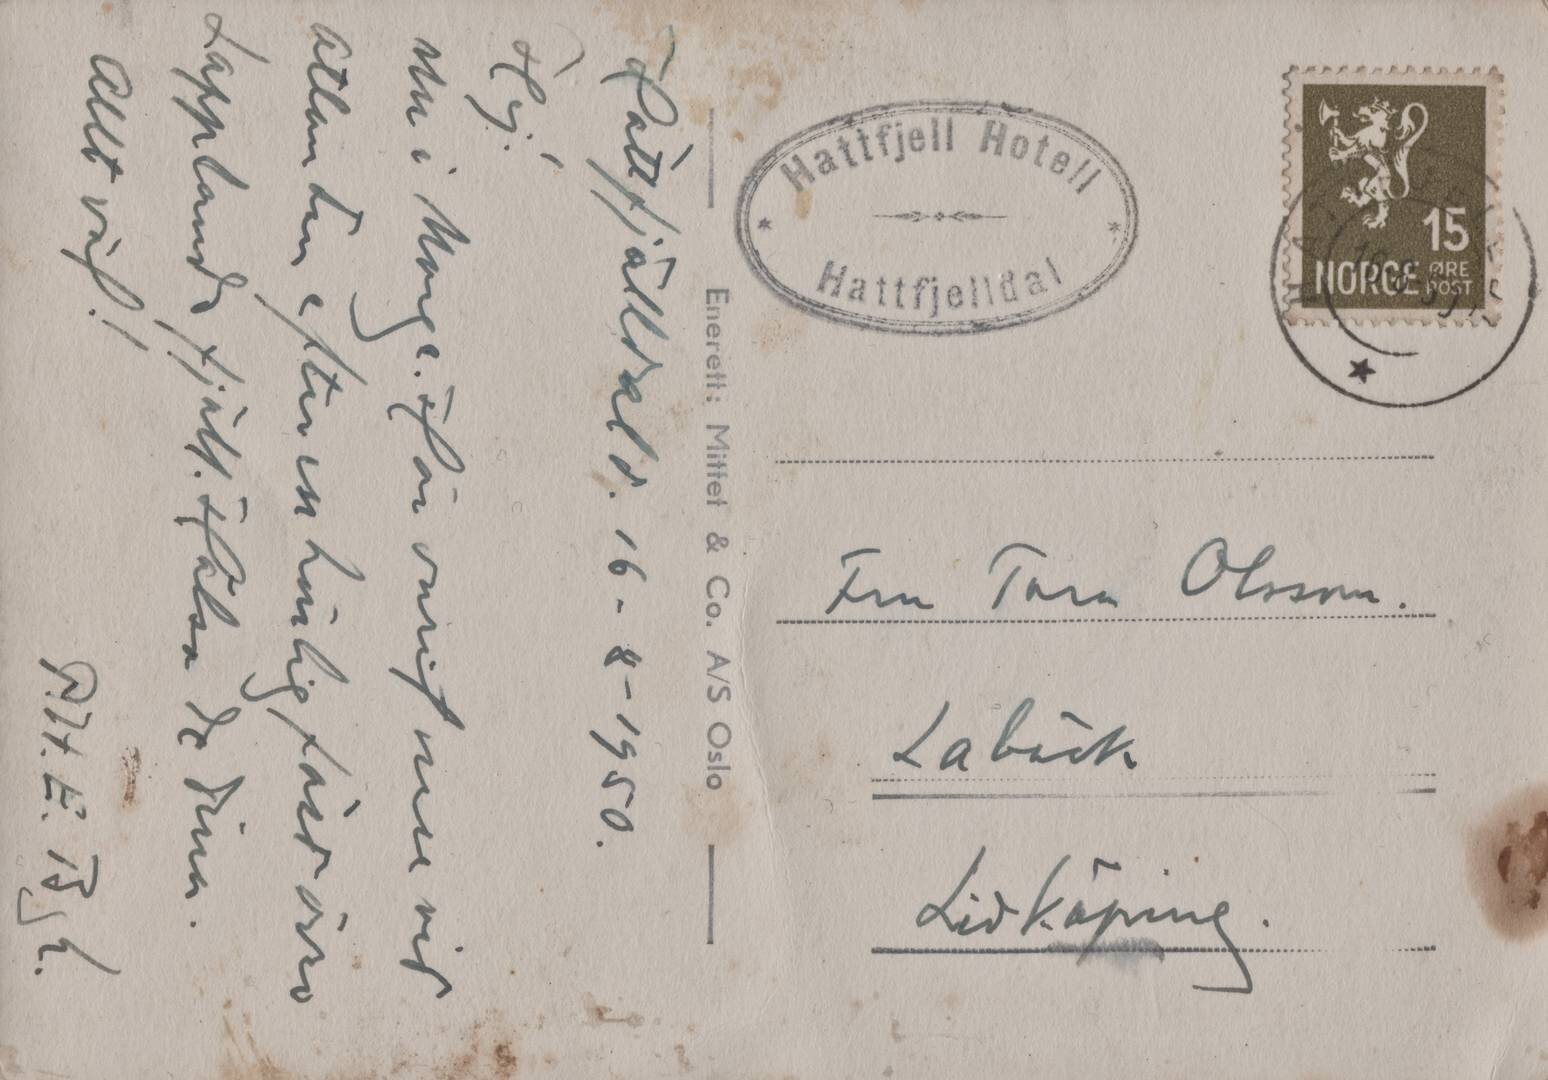 Hattfjälldal. 16-8-1950.
Hej!
Nu i Norge. Har varit nere vid
atlanten efter en härlig färd över
Lapplands fjäll. Hälsa de dina.
Allt väl!
Enerett: Mittet & Co. A/S Oslo
Hattfjell Hotell
Hattfjelldal
15
NORGE ØRE
POST
Fru Tora Olsson.
Labäck
Lidköping.